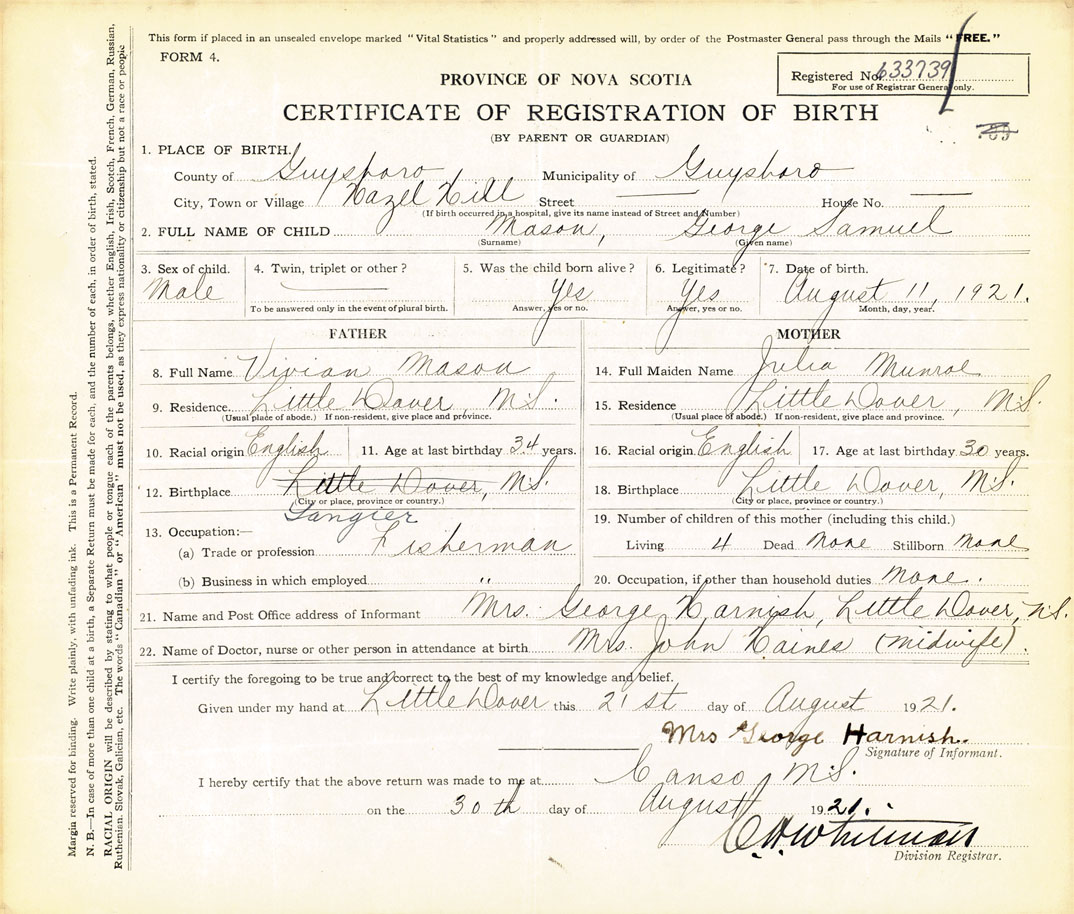 This form if placed in an unsealed envelope marked "Vital Statistics" and properly addressed will, by order of the Postmaster General pass through the Mails "FREE."
FORM 4.
Registered No. 633739
For use of Registrar General only.
PROVINCE OF NOVA SCOTIA
CERTIFICATE OF REGISTRATION OF BIRTH
(BY PARENT OR GUARDIAN)
1. PLACE OF BIRTH.
County of Guysboro Municipality of Guysboro
City, Town or Village Hazel Hill Street — House No. —
(If birth occurred in a hospital, give its name instead of Street and Number)
2. FULL NAME OF CHILD Mason, George Samuel
(Surname) (Given name)
3. Sex of child. 4. Twin, triplet or other? 5. Was the child born alive? 6. Legitimate? 7. Date of birth.
Male — Yes Yes August 11, 1921.
To be answered only in the event of plural birth. Answer, yes or no. Answer, yes or no. Month, day, year.
FATHER
8. Full Name Vivian Mason
9. Residence Little Dover N.S.
(Usual place of abode.) If non-resident, give place and province.
10. Racial origin English 11. Age at last birthday 34 years.
12. Birthplace Little Dover, N.S.
(City or place, province or country.)
Tangier
13. Occupation:—
(a) Trade or profession Fisherman
(b) Business in which employed "
MOTHER
14. Full Maiden Name Julia Munroe
15. Residence Little Dover, N.S.
(Usual place of abode.) If non-resident, give place and province.
16. Racial origin English 17. Age at last birthday 30 years.
18. Birthplace Little Dover, N.S.
(City or place, province or country.)
19. Number of children of this mother (including this child.)
Living 4 Dead None Stillborn None
20. Occupation, if other than household duties None.
21. Name and Post Office address of Informant Mrs. George Harnish, Little Dover, N.S.
22. Name of Doctor, nurse or other person in attendance at birth Mrs. John Haines (Midwife).
I certify the foregoing to be true and correct to the best of my knowledge and belief.
Given under my hand at Little Dover this 21st day of August 1921.
Mrs George Harnish.
Signature of Informant.
I hereby certify that the above return was made to me at Canso, N.S.
on the 30th day of August 1921.
C H Whitman
Division Registrar.
Margin reserved for binding. Write plainly, with unfading ink. This is a Permanent Record.
N. B.—In case of more than one child at a birth, a Separate Return must be made for each, and the number of each, in order of birth, stated.
RACIAL ORIGIN will be described by stating to what people or tongue each of the parents belongs, whether English, Irish, Scotch, French, German, Russian,
Ruthenian, Slovak, Galician, etc. The words "Canadian" or "American" must not be used, as they express nationality or citizenship but not a race or people